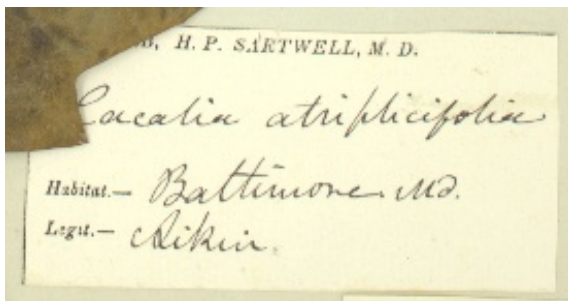 H. P. SARTWELL, M. D.
Cacalia atriplicifolia
Habitat.— Baltimore Md.
Legit.— Aikin.